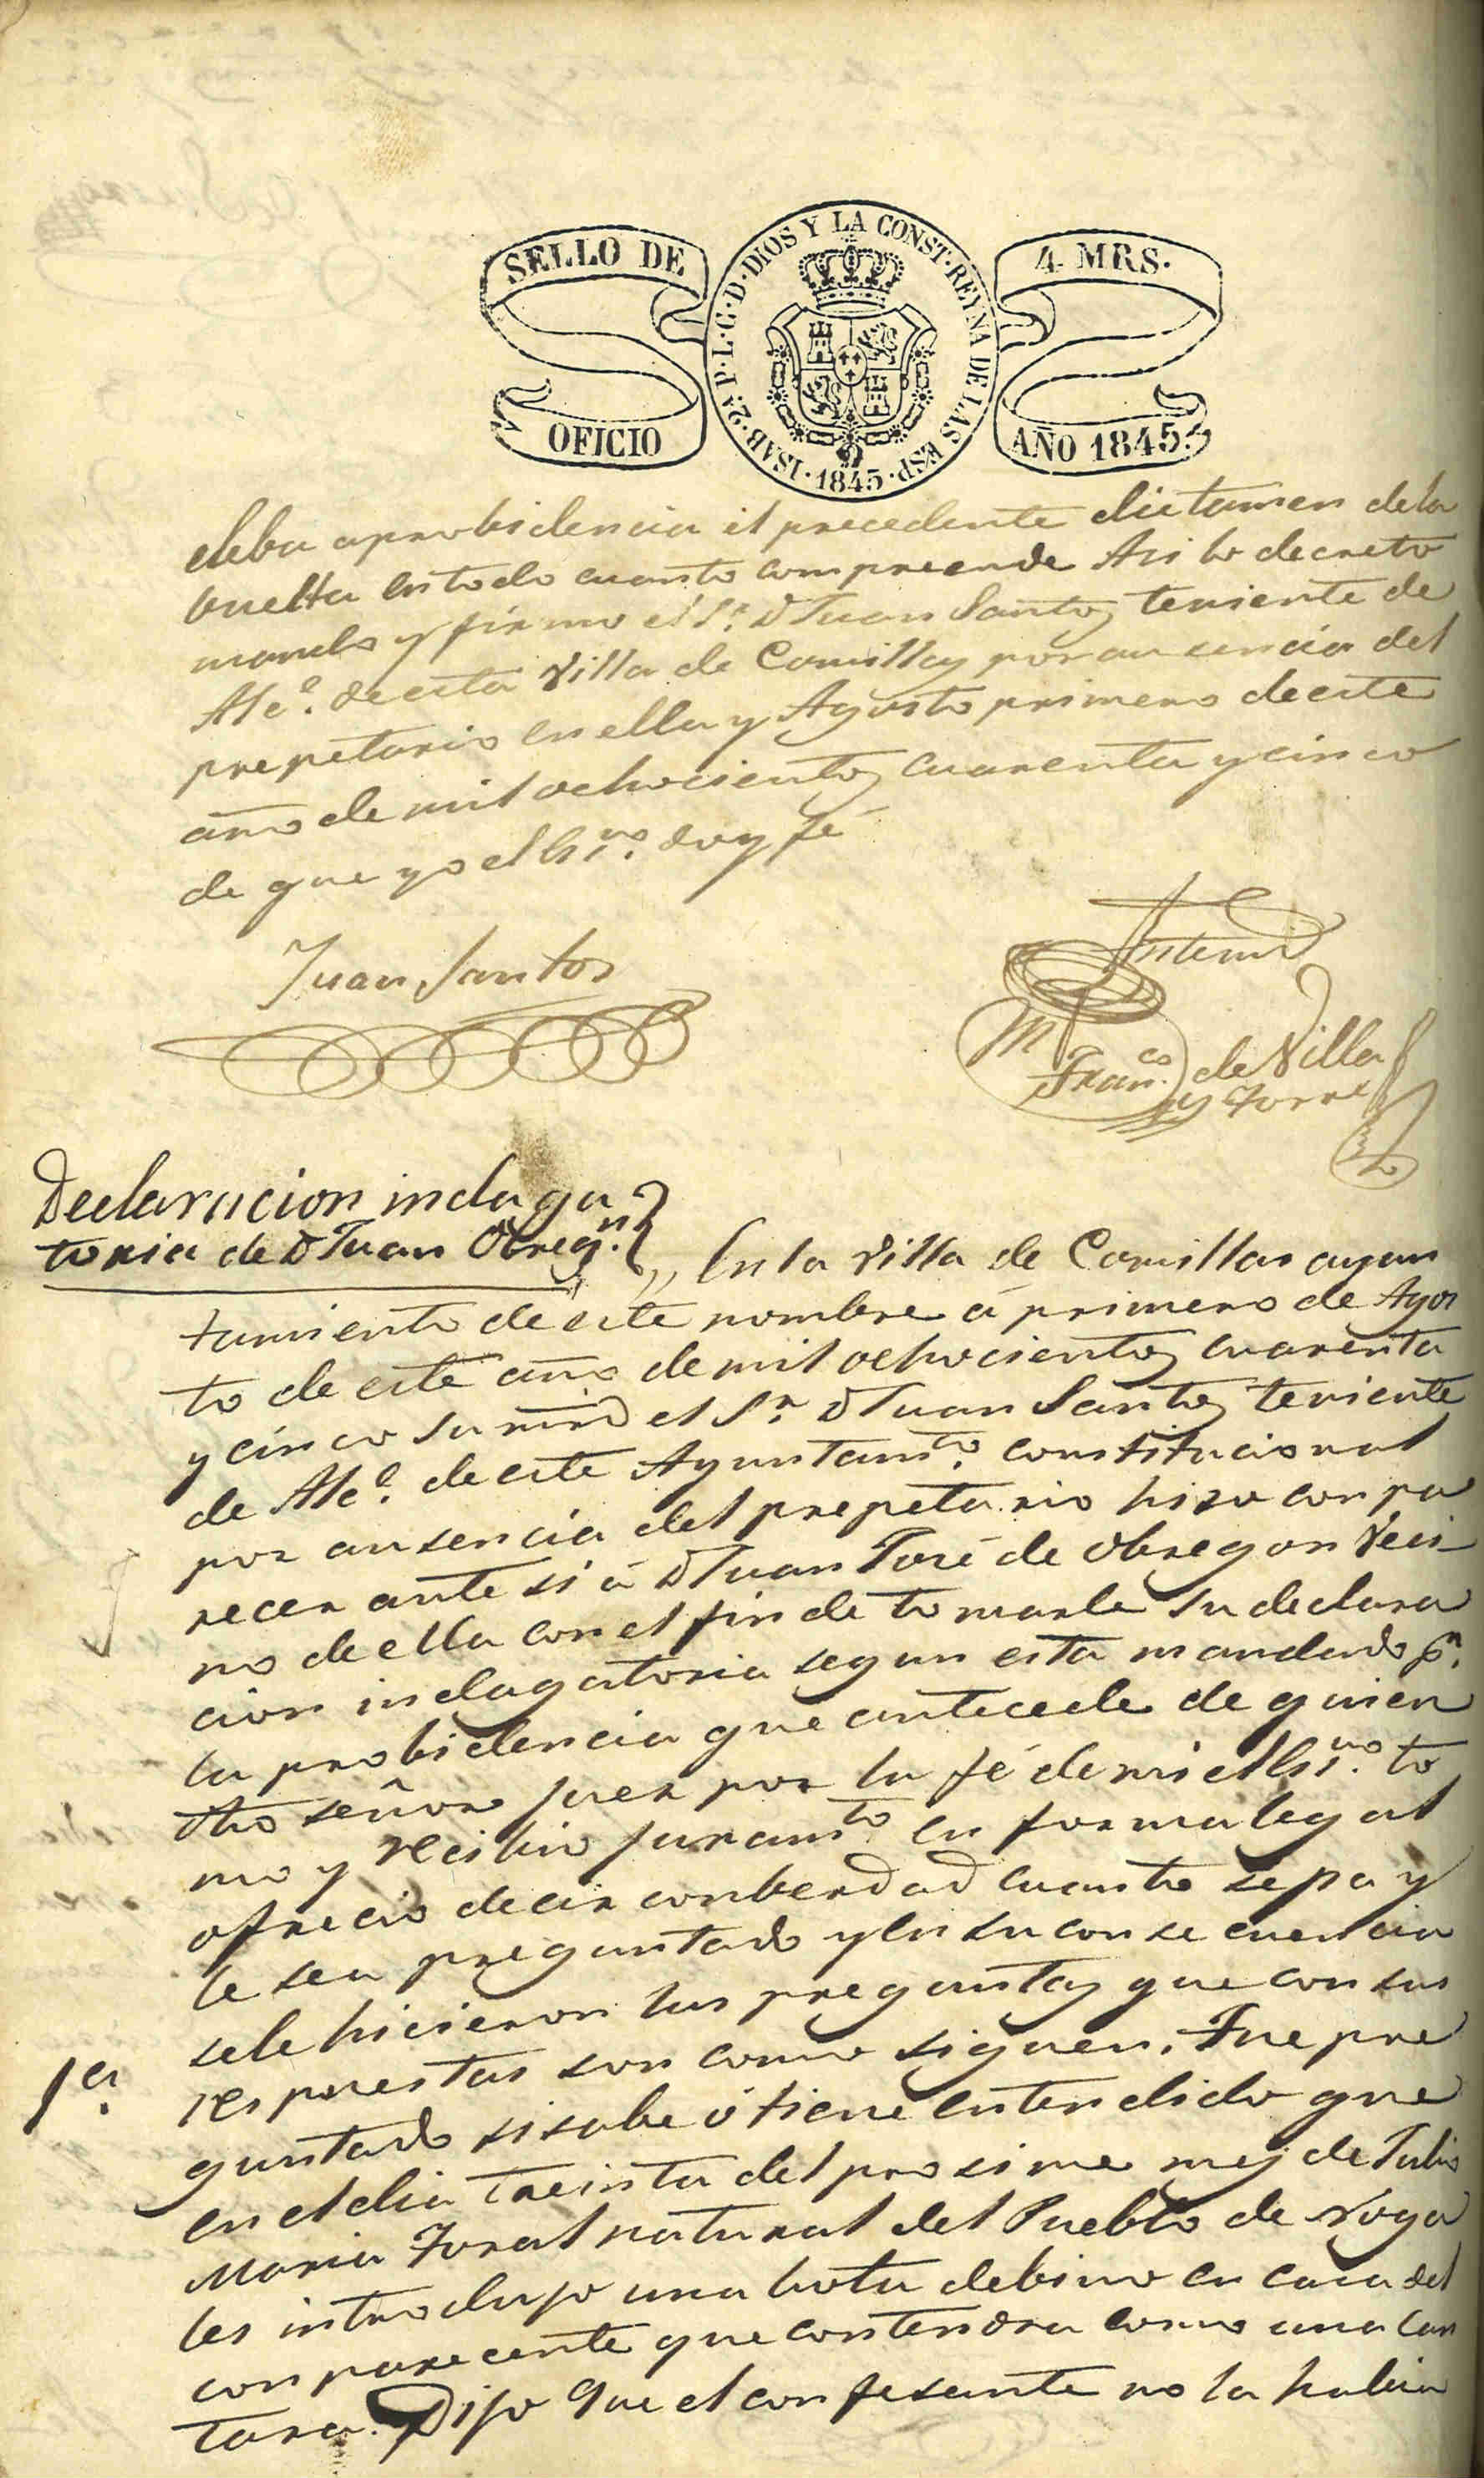 SELLO DE
OFICIO
ISAB. 2ª P. L. G. D. DIOS Y LA CONST. REYNA DE LAS ESP. 1845.
4 MRS.
AÑO 1845.
eleba aprobidencia el precedente dictamen dela
buelta en todo cuanto compreende Asi lo decreto
mando y firmo el Sr. D Juan Santos teniente de
Alce. de esta Villa de Comillas por ausencia del
prepetario en ella y Agosto primero de este
año de mil ochocientos cuarenta y cinco
de que yo el Esno. doy fé
Juan Santos
Antemi
Franco. de Villa
y Torre
Declaracion indaga
toria de D Juan Obregn.
En la Villa de Comillas ayun
tamiento de este nombre á primero de Agos
to de este año de mil ochocientos cuarenta
y cinco su mrd el Sr. D Juan Santos teniente
de Alce. de este Ayuntamto. constitucional
por ausencia del prepetario hizo conpa
recer ante si á D Juan José de Obregon Veci
no de ella con el fin de tomarle su declara
cion indagatoria segun esta mandado pr.
la probidencia que antecede de quien
dho señor juez por la fé de mi el Esno. to
mo y recibio juramto. en forma legal
ofrecio decir conberdad cuanto sepa y
le sea preguntado y en su consecuencia
sele hicieron las preguntas que con sus
respuestas son como siguen. Fue pre
1ª.
guntado si sabe ó tiene entendido que
en el dia treinta del prosimo mes de Julio
Maria Toral natural del Pueblo de Noga
les introdujo una bota debino en casa del
conparecente que contendra como una can
tara. Dijo Que el confesante no la habia